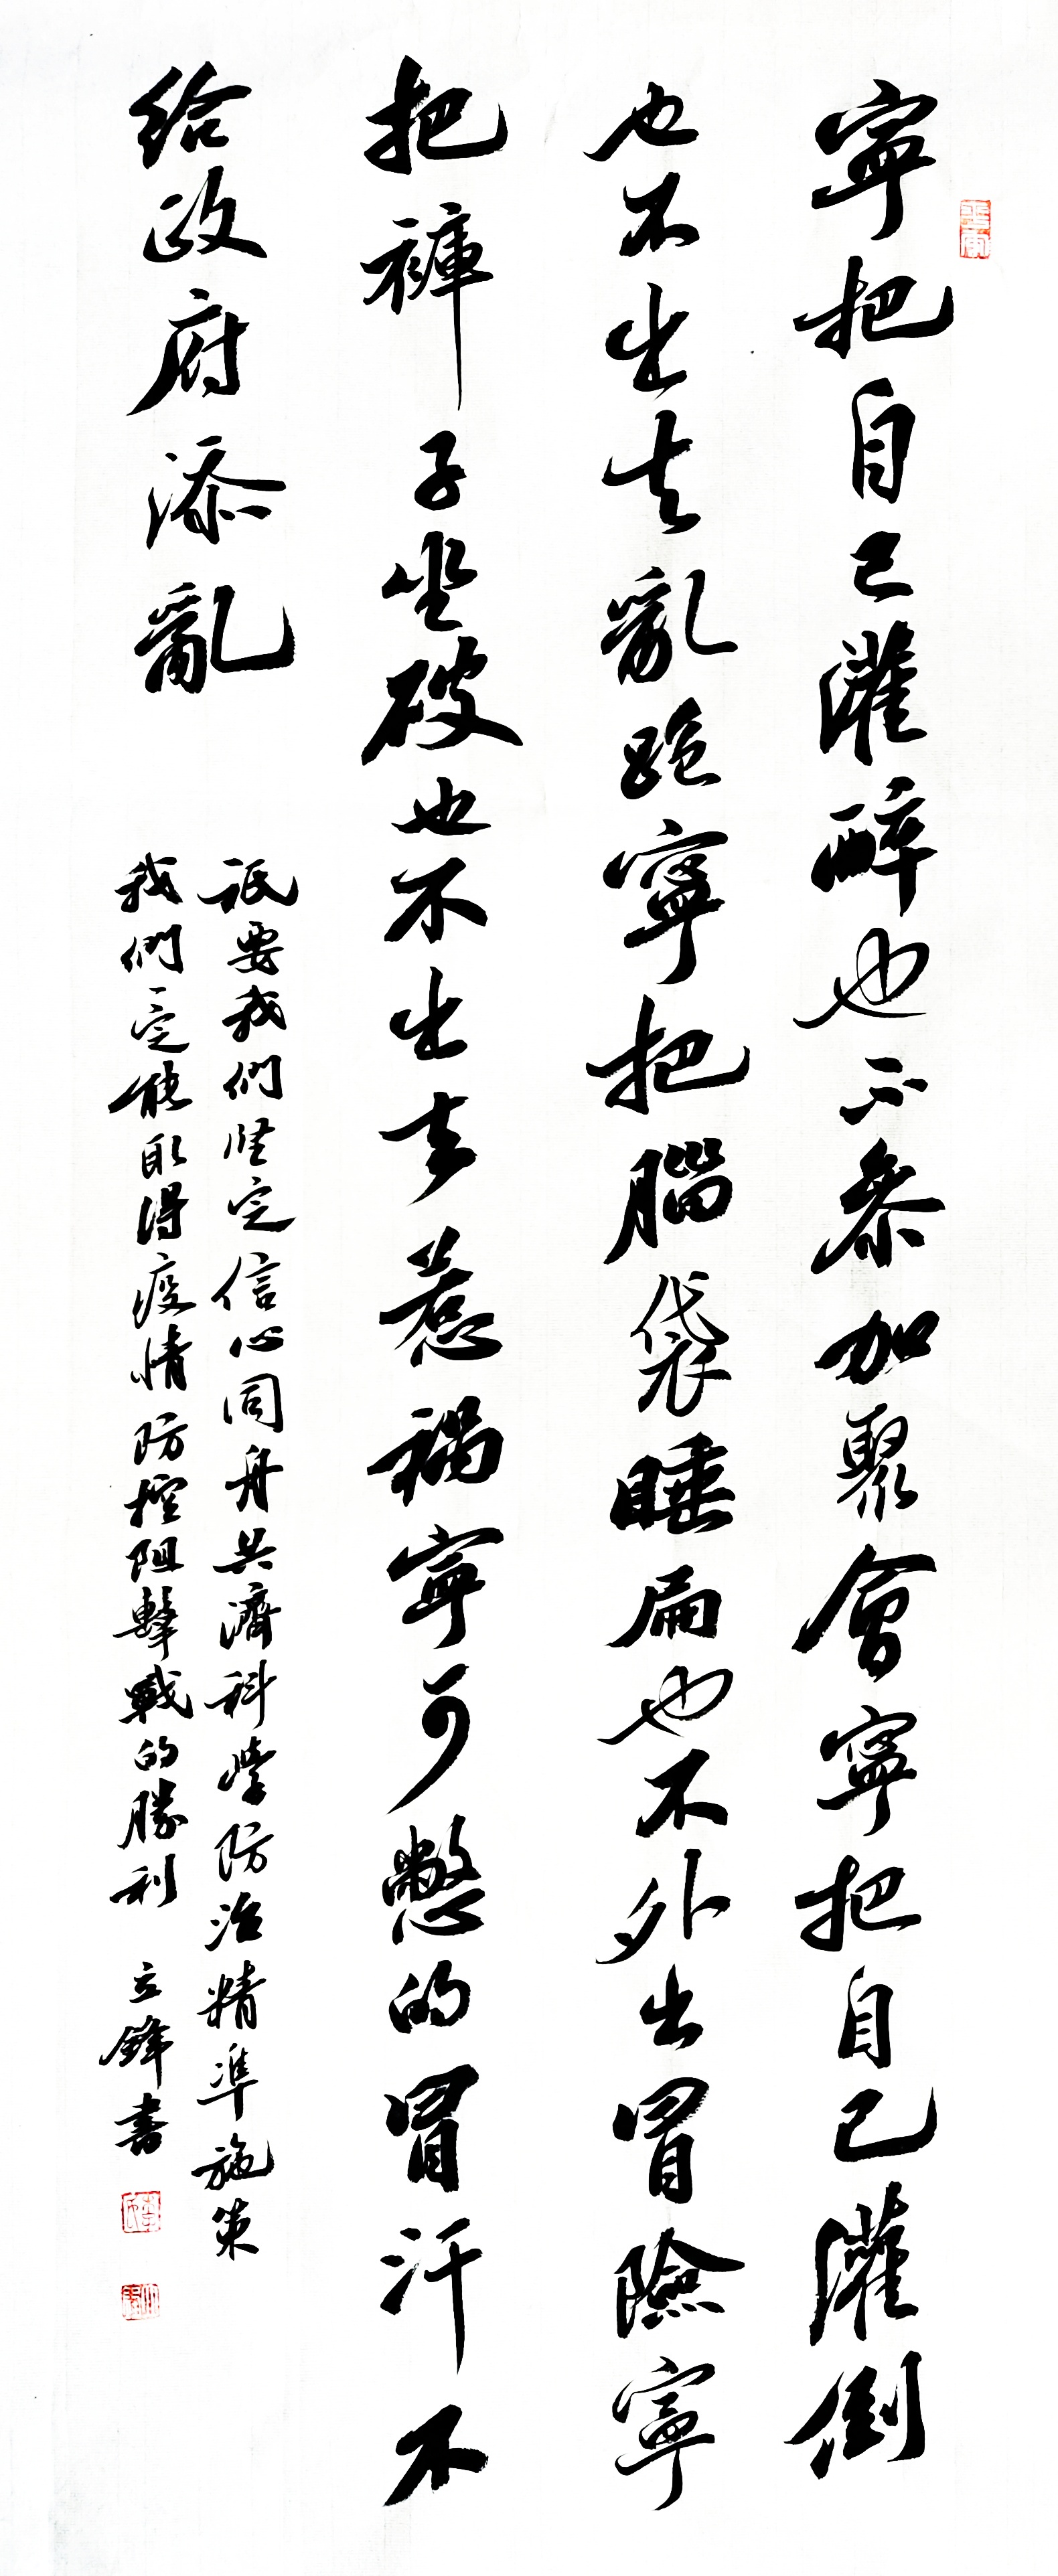 寧把自己灌醉也不參加聚會寧把自己灌倒
也不出去亂跑寧把腦袋睡扁也不外出冒險寧
把褲子坐破也不出去惹禍寧可憋的冒汗不
給政府添亂
祇要我們堅定信心同舟共濟科學防治精準施策
我們一定能取得疫情防控阻擊戰的勝利
立鋒書